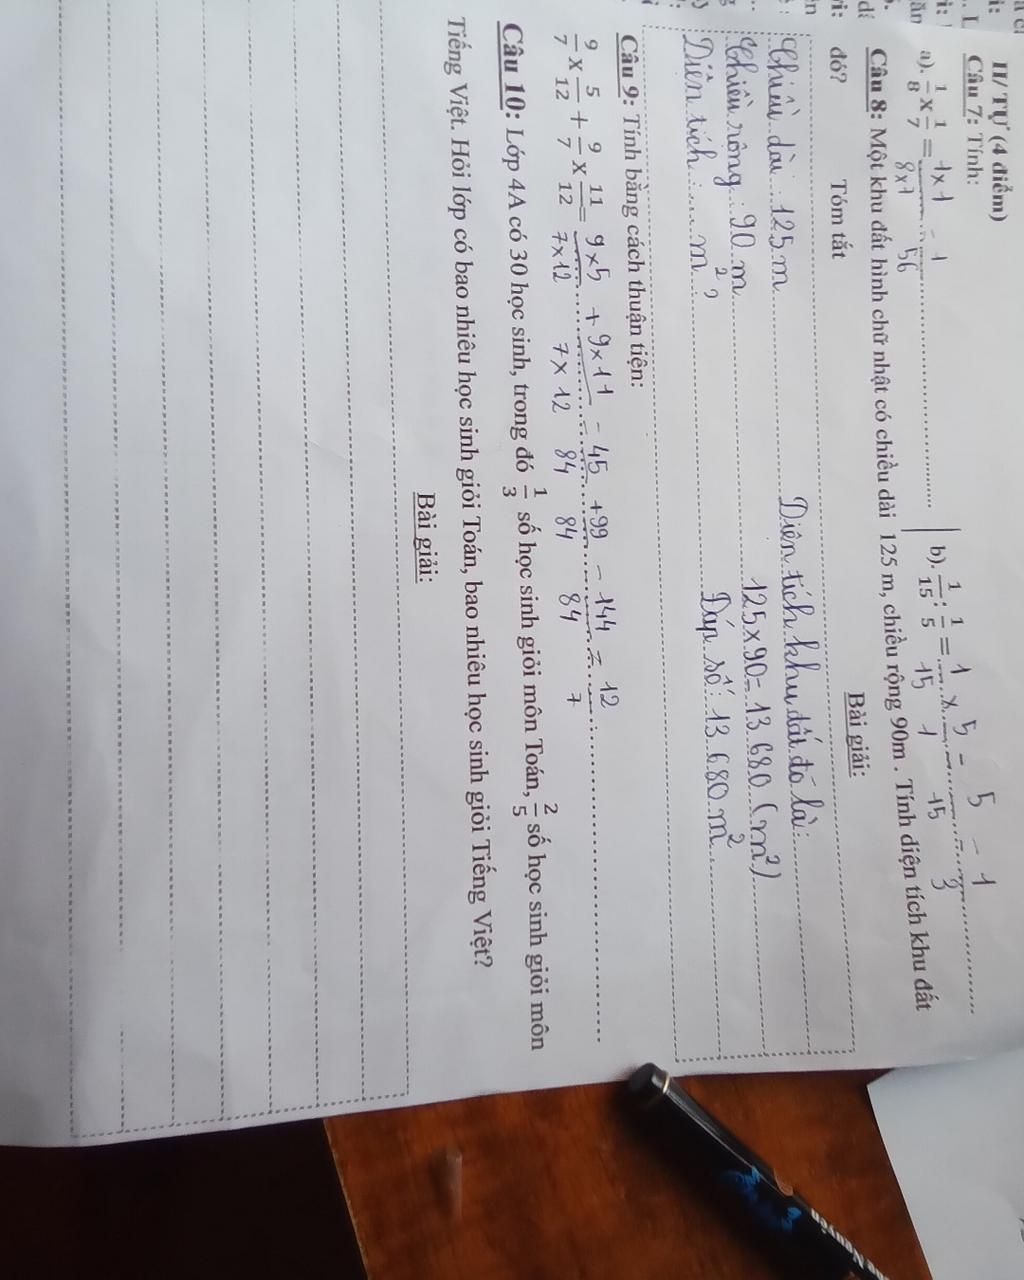 II/ TỰ (4 điểm)
Câu 7: Tính:
a). 1/8 x 1/7 = 1x1/8x7 = 1/56
b). 1/15 : 1/5 = 1/15 x 5/1 = 5/15 = 1/3
Câu 8: Một khu đất hình chữ nhật có chiều dài 125 m, chiều rộng 90m . Tính diện tích khu đất
đó?
Tóm tắt
Bài giải:
Chiều dài : 125m
Chiều rộng : 90 m
Diện tích : ..... m² ?
Diện tích khu đất đó là:
125x90= 13 680 (m²)
Đáp số: 13 680 m²
Câu 9: Tính bằng cách thuận tiện:
9/7 x 5/12 + 9/7 x 11/12 = 9x5/7x12 + 9x11/7x12 = 45/84 + 99/84 = 144/84 = 12/7
Câu 10: Lớp 4A có 30 học sinh, trong đó 1/3 số học sinh giỏi môn Toán, 2/5 số học sinh giỏi môn
Tiếng Việt. Hỏi lớp có bao nhiêu học sinh giỏi Toán, bao nhiêu học sinh giỏi Tiếng Việt?
Bài giải: